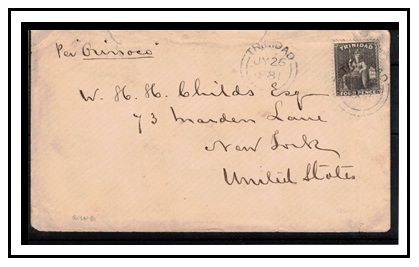 Per "Orinoco"
TRINIDAD
JY 26
81
TRINIDAD
FOUR PENCE
W. H. H. Childs Esq
73 Maiden Lane
New York
United States